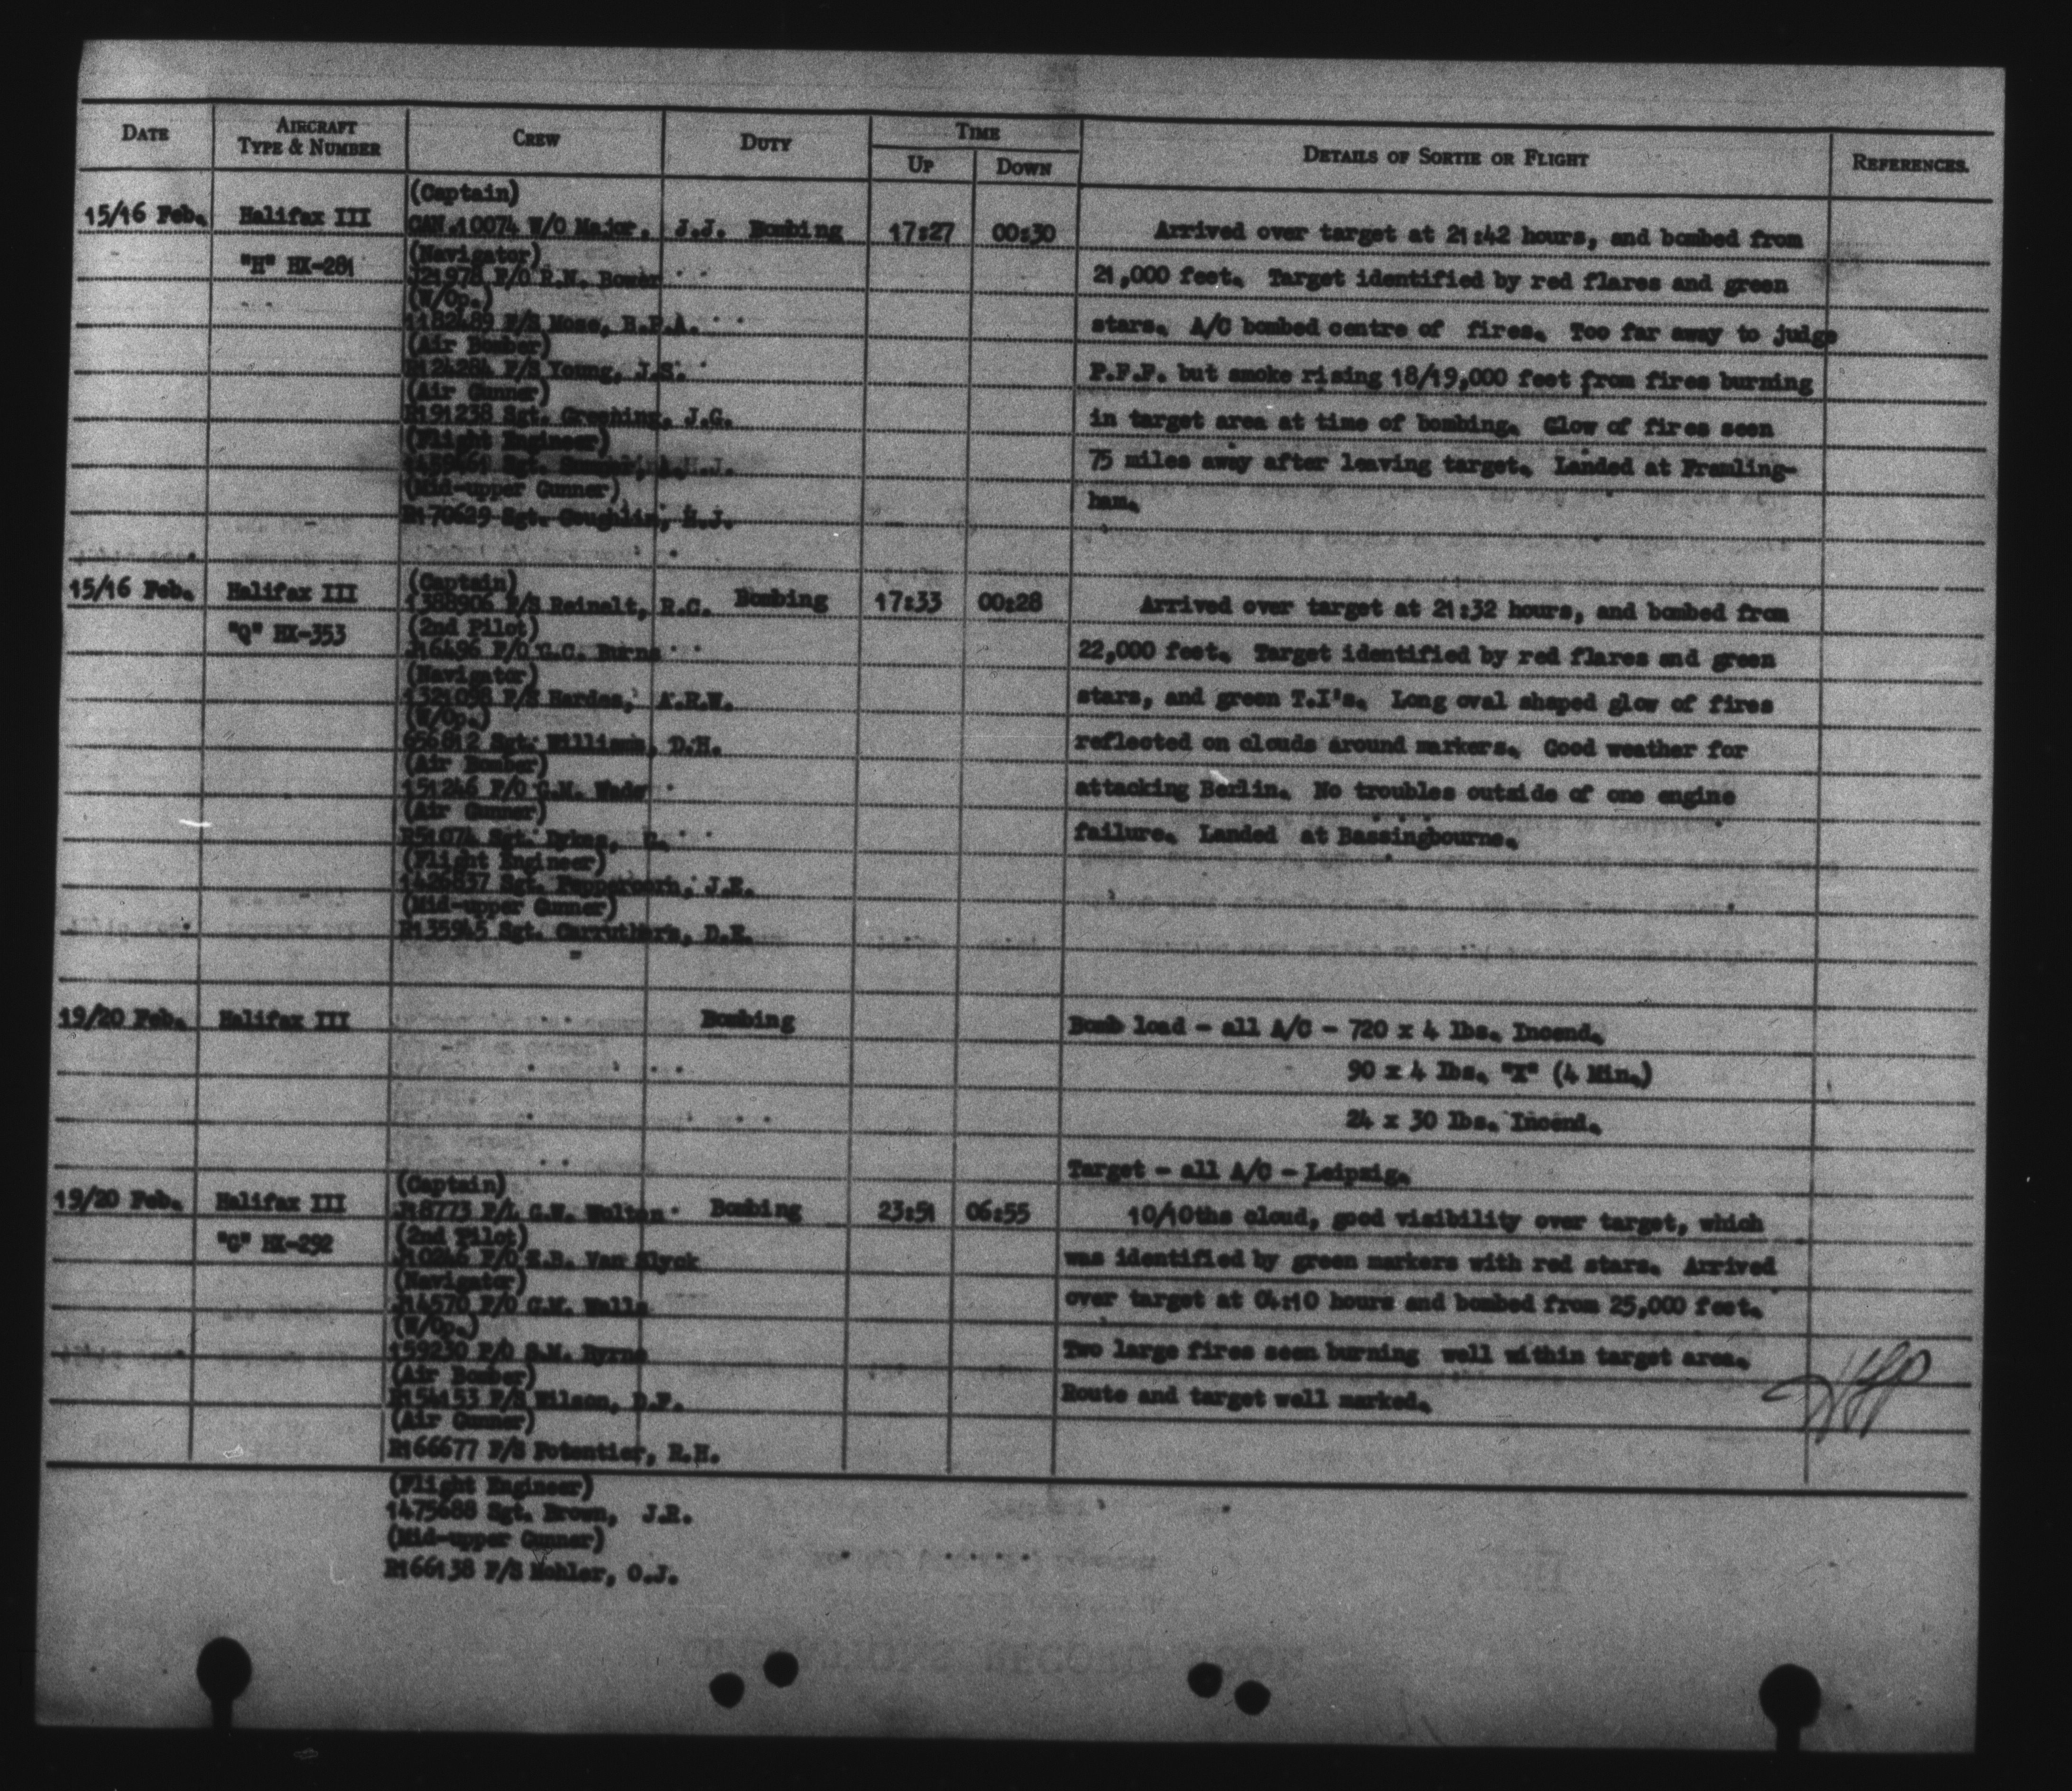 DATE AIRCRAFT TYPE & NUMBER CREW DUTY TIME UP DOWN DETAILS OF SORTIE OR FLIGHT REFERENCES.
(Captain)
15/16 Feb. Halifax III CAN.10074 W/O Major. J.J. Bombing 17:27 00:30 Arrived over target at 21:42 hours, and bombed from
(Navigator)
"H" HX-281 J21978 F/O R.N. Bower 21,000 feet. Target identified by red flares and green
(W/Op.)
1182489 F/S Mose, stars. A/C bombed centre of fires. Too far away to judge
(Air Bomber)
R124284 F/S Young, J.S. P.F.F. but smoke rising 18/19,000 feet from fires burning
(Air Gunner)
R191238 Sgt. J.G. in target area at time of bombing. Glow of fires seen
(Flight Engineer)
Sgt. H.J. 75 miles away after leaving target. Landed at Framling-
(Mid-upper Gunner)
ham.
R170629 Sgt. Coughlin, H.J.
(Captain)
15/16 Feb. Halifax III 1388906 F/S Reinelt, R.C. Bombing 17:33 00:28 Arrived over target at 21:32 hours, and bombed from
(2nd Pilot)
"Q" HX-353 J16496 F/O Burns 22,000 feet. Target identified by red flares and green
(Navigator)
1321098 F/S Hardes, A.R.W. stars, and green T.I's. Long oval shaped glow of fires
(W/Op.)
656812 Sgt. D.H. reflected on clouds around markers. Good weather for
(Air Bomber)
151246 F/O G.M. Wade attacking Berlin. No troubles outside of one engine
(Air Gunner)
R51074 Sgt. Dykes, failure. Landed at Bassingbourne.
(Flight Engineer)
1426837 Sgt. Peppercorn, J.E.
(Mid-upper Gunner)
R135945 Sgt. Carruthers, D.E.
19/20 Feb. Halifax III Bombing Bomb load - all A/C - 720 x 4 lbs. Incend.
90 x 4 lbs. "X" (4 Min.)
24 x 30 lbs. Incend.
Target - all A/C - Leipzig.
(Captain)
19/20 Feb. Halifax III J18773 F/L G.W. Wolton Bombing 23:51 06:55 10/10ths cloud, good visibility over target, which
(2nd Pilot)
"G" HX-292 J10246 F/O Van Slyck was identified by green markers with red stars. Arrived
(Navigator)
J14570 F/O G.M. Walls over target at 04:10 hours and bombed from 25,000 feet.
(W/Op.)
159230 P/O S.M. Byrne Two large fires seen burning well within target area.
(Air Bomber)
R154153 F/S Wilson, D.F. Route and target well marked.
(Air Gunner)
R166677 F/S Potentier, R.H.
(Flight Engineer)
1475688 Sgt. Brown, J.R.
(Mid-upper Gunner)
R166138 F/S Kohler, O.J.